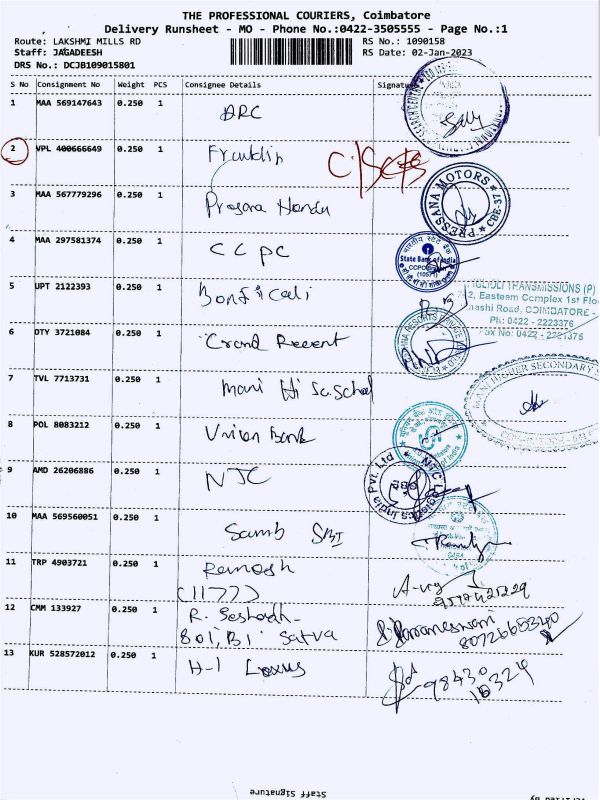 THE PROFESSIONAL COURIERS, Coimbatore
Delivery Runsheet - MO - Phone No.:0422-3505555 - Page No.:1
Route: LAKSHMI MILLS RD
RS No.: 1090158
Staff: JAGADEESH
RS Date: 02-Jan-2023
DRS No.: DCJB109015801
S No Consignment No Weight PCS Consignee Details Signature
1 MAA 569147643 0.250 1 ARC
2 VPL 400666649 0.250 1 Franklin
3 MAA 567779296 0.250 1 Prasana Honda
PRESSANA MOTORS
CBE-37
4 MAA 297581374 0.250 1 CCPC
भारतीय स्टेट बैंक
State Bank of India
5 UPT 2122393 0.250 1 Bonficali
TRANSMISSIONS (P)
2, Eastern Complex 1st Floor
nashi Road, COIMBATORE -
Ph: 0422 - 2223376
Fax No: 0422 - 2221375
6 DTY 3721084 0.250 1 Grand Regent
7 TVL 7713731 0.250 1 Mani Hi Sc. School
HIGHER SECONDARY
8 POL 8083212 0.250 1 Union Bank
9 AMD 26206886 0.250 1 NJC
Pvt. Ltd
10 MAA 569560051 0.250 1 Samb SBI
11 TRP 4903721 0.250 1 Ramesh
(1177)
12 CMM 133927 0.250 1 R. Seshadh-
801, B1 Satva
8072665340
13 KUR 528572012 0.250 1 H-1 Lexus
98430
10324
Staff Signature